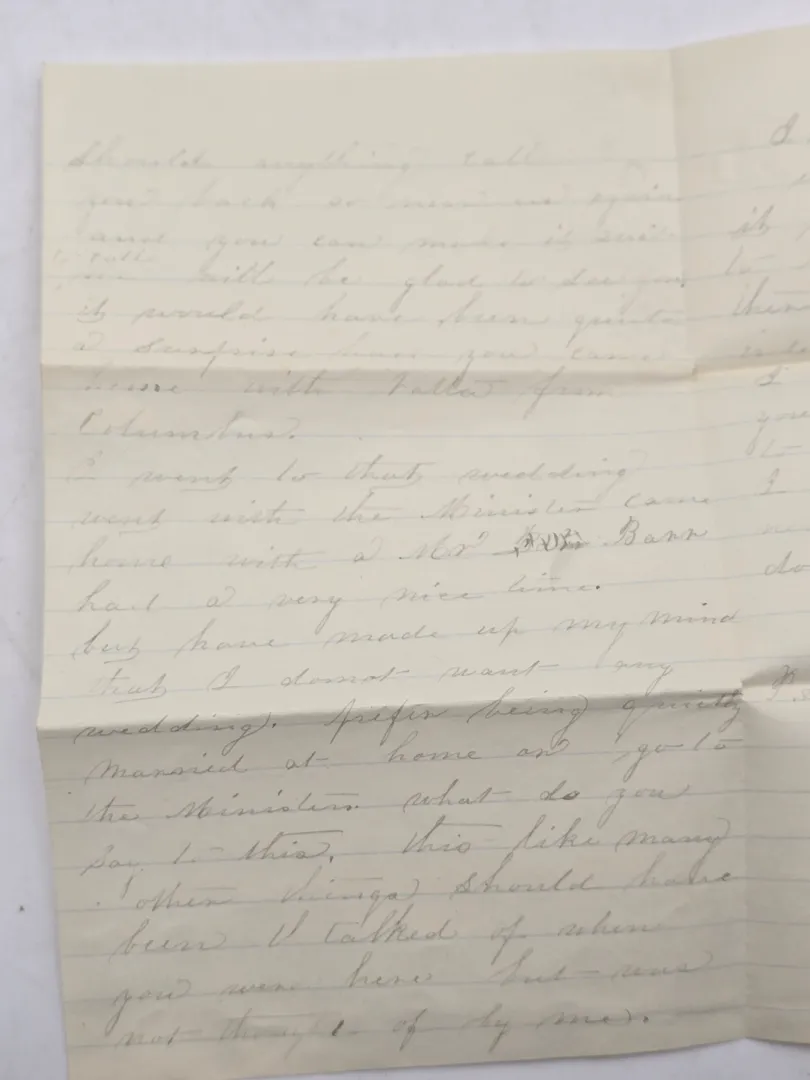 Should anything call
you back so near us again
and you can make it suit
we all will be glad to see you
it would have been quite
a surprise had you came
home with from
Columbus.
I went to that wedding
went with the Minister came
home with a Mr Barr
had a very nice time.
but have made up my mind
that I do not want any
wedding. Prefer being quietly
Married at home or go to
the Minister. what do you
say to this. this like many
other things should have
been talked of when
you were here but was
not thought of by me.
I
it
to
then
I
you
to
I
do